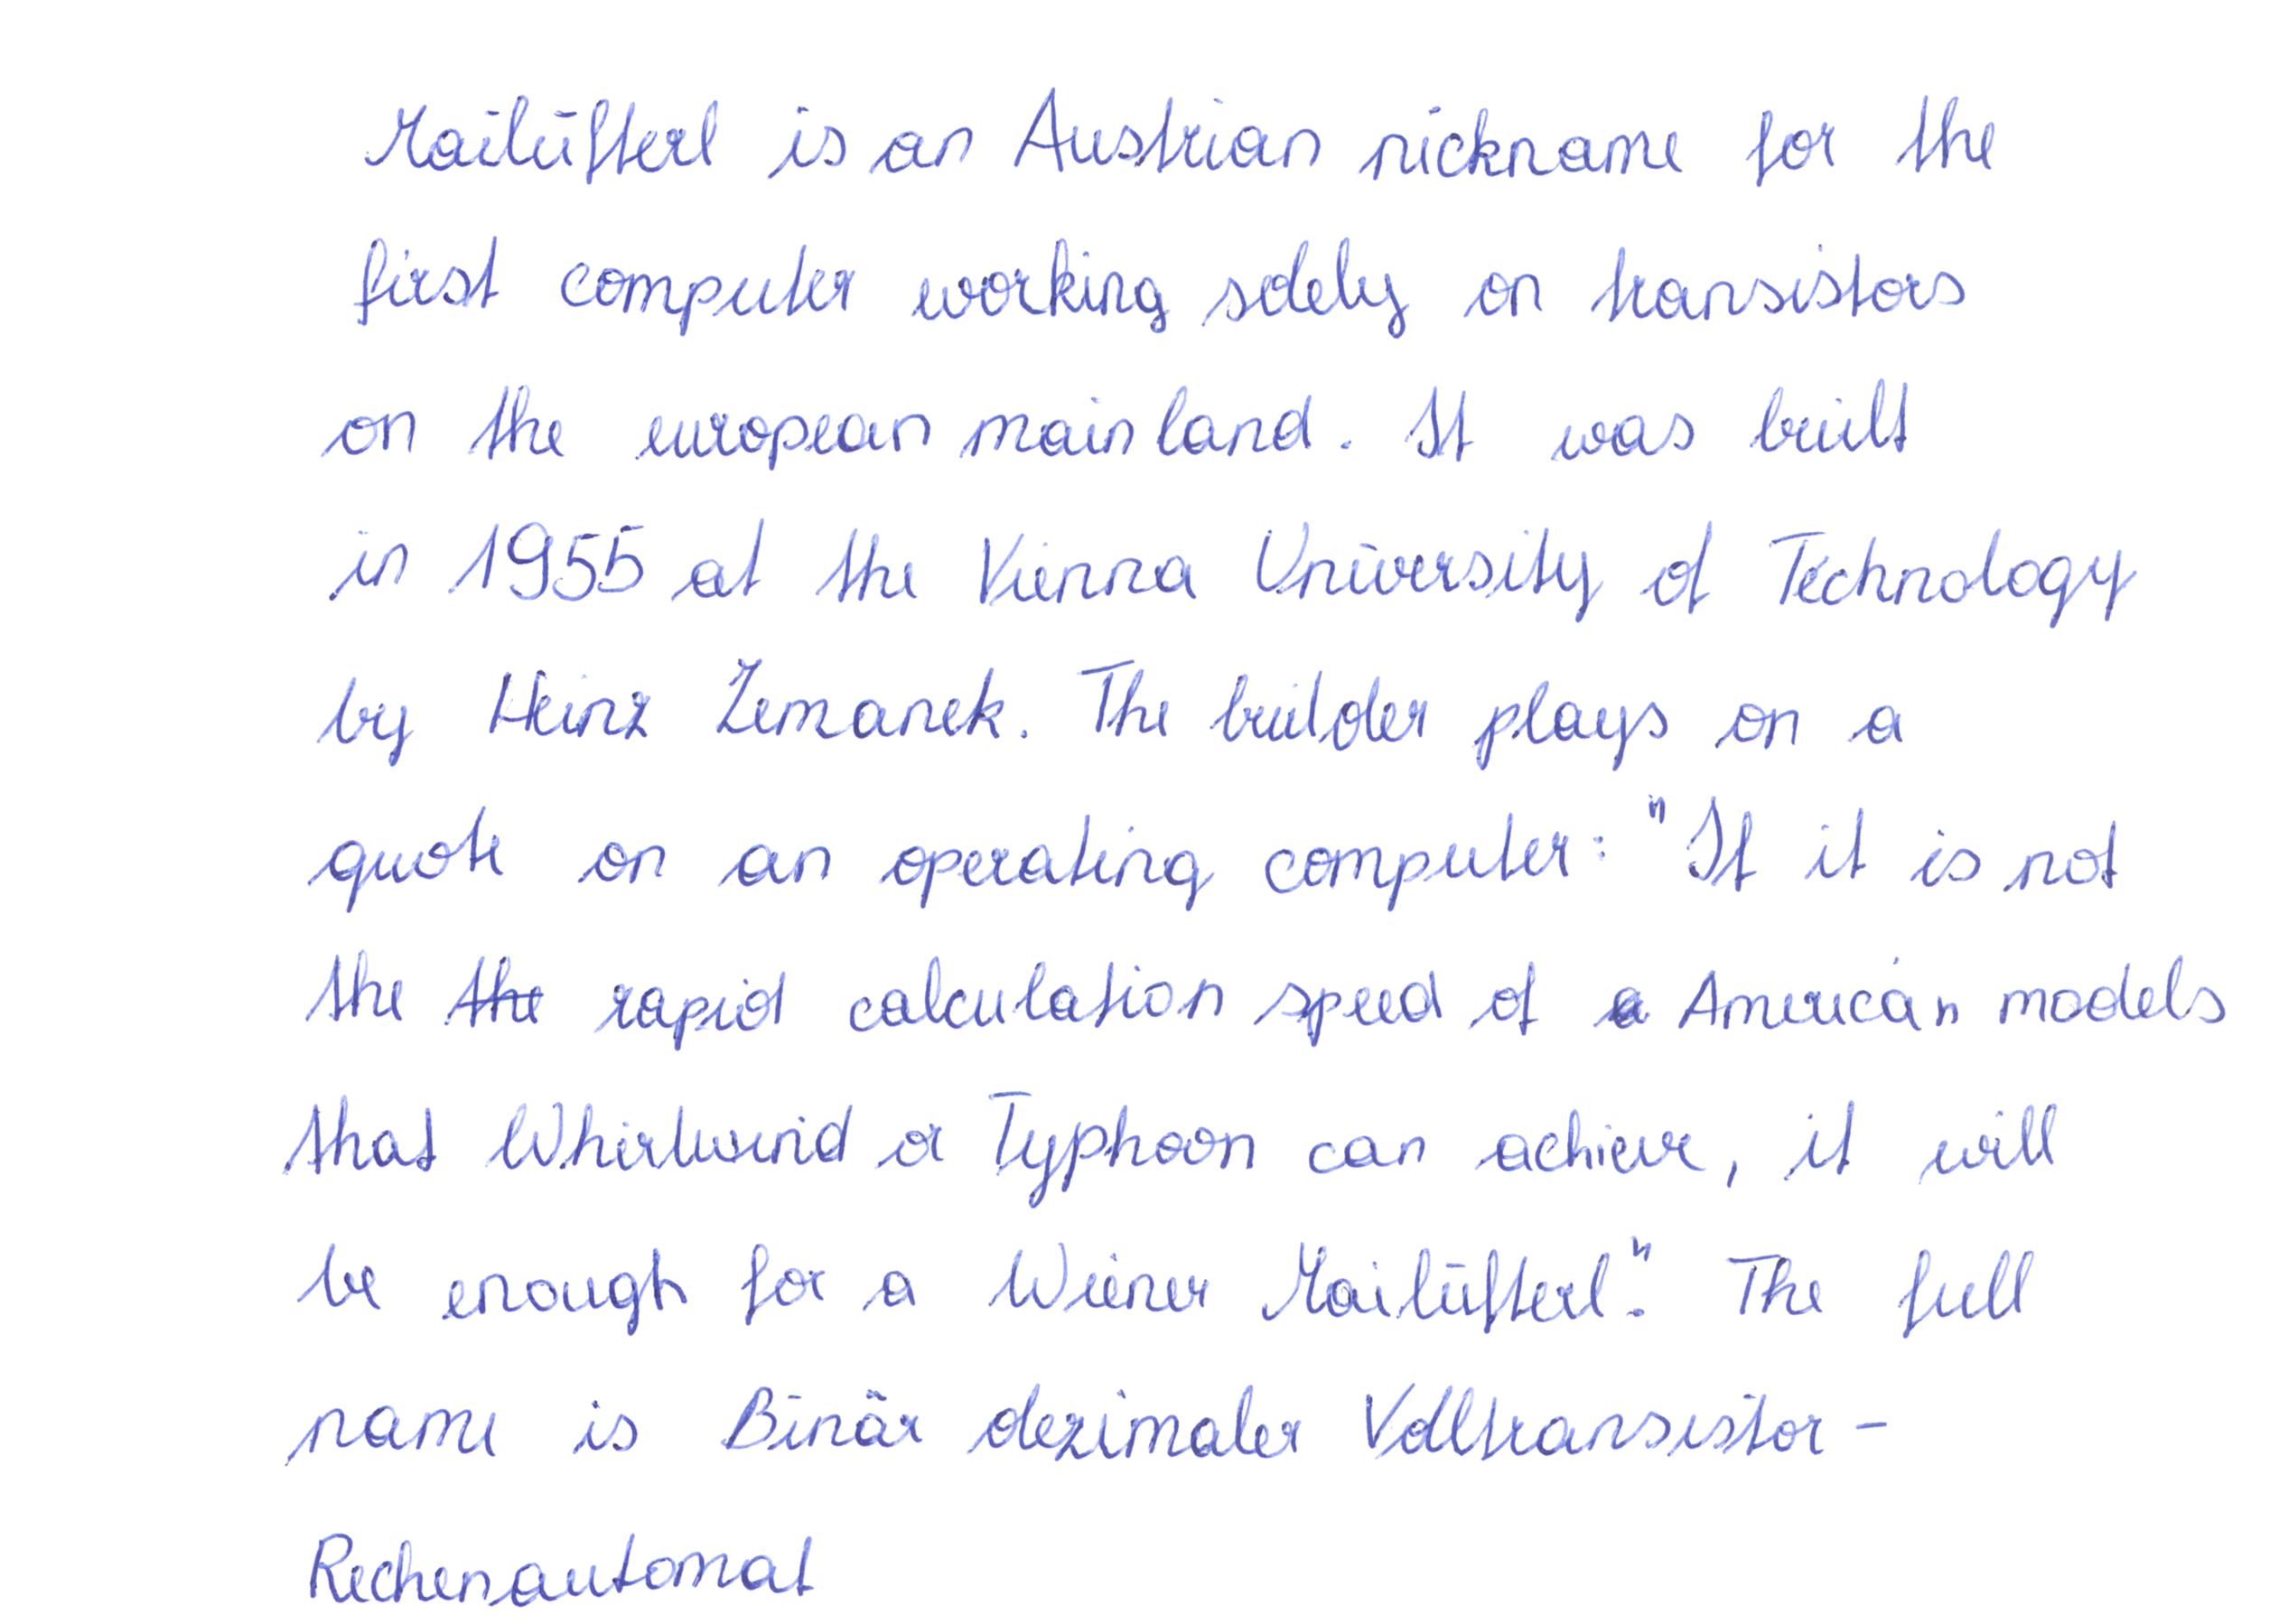 Mailüfterl is an Austrian nickname for the
first computer working solely on transistors
on the european mainland. It was built
in 1955 at the Vienna University of Technology
by Heinz Zemanek. The builder plays on a
quote on an operating computer: "If it is not
the the rapid calculation speed of a American models
that Whirlwind or Typhoon can achieve, it will
be enough for a Wiener Mailüfterl." The full
name is Binär dezimaler Volltransistor-
Rechenautomat